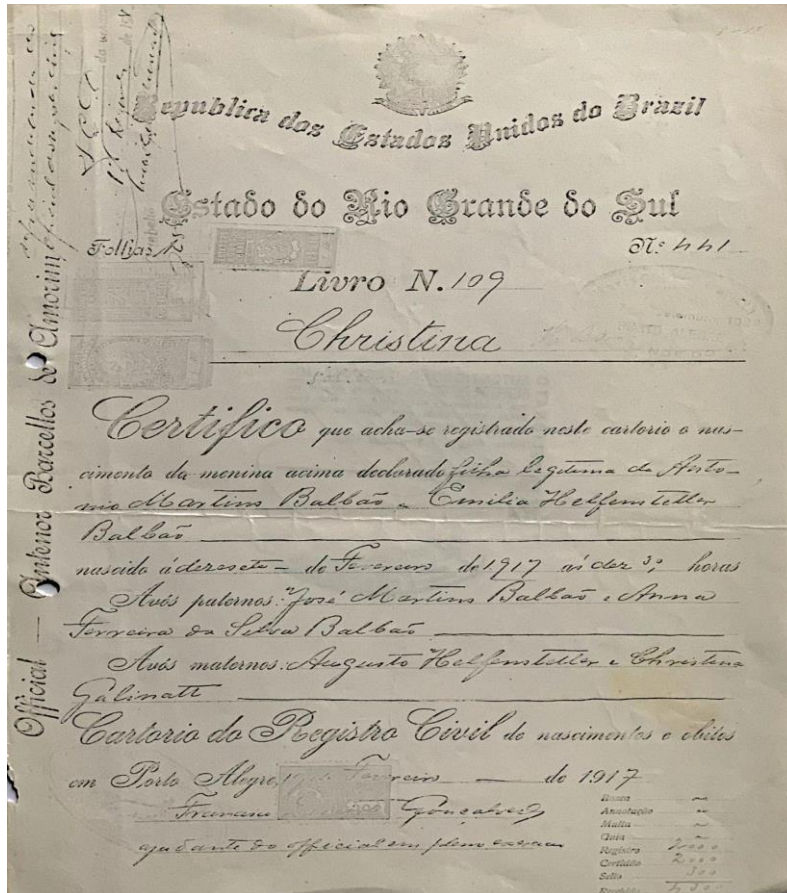 Republica dos Estados Unidos do Brazil
Estado do Rio Grande do Sul
Folhas
Nº 441
Livro N. 109
Christina
Certifico que acha-se registrado neste cartorio o nas-
cimento da menina acima declarado filha legitima de Anto-
nio Martins Balbaõ e Emilia Helfensteller
Balbaõ
nascida á dezesete - de Fevereiro de 1917 ás dez horas
Avós paternos: José Martins Balbaõ e Anna
Ferreira da Silva Balbaõ
Avós maternos: Augusto Helfensteller e Christina
Galinatt
Cartorio do Registro Civil de nascimentos e obitos
em Porto Alegre, Fevereiro — de 1917
Gonçalves
ajudante do official em pleno
Official — Antenor Barcellos de Amorim
Busca
Annotação
Multa
Guia
Registro 2000
Certidão 2000
Sello 300